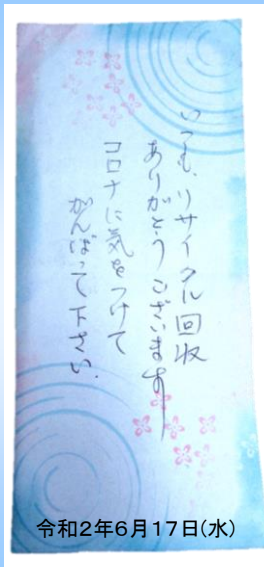 いつも、リサイクル回収
ありがとうございます
コロナに気をつけて
がんばって下さい.
令和2年6月17日(水)